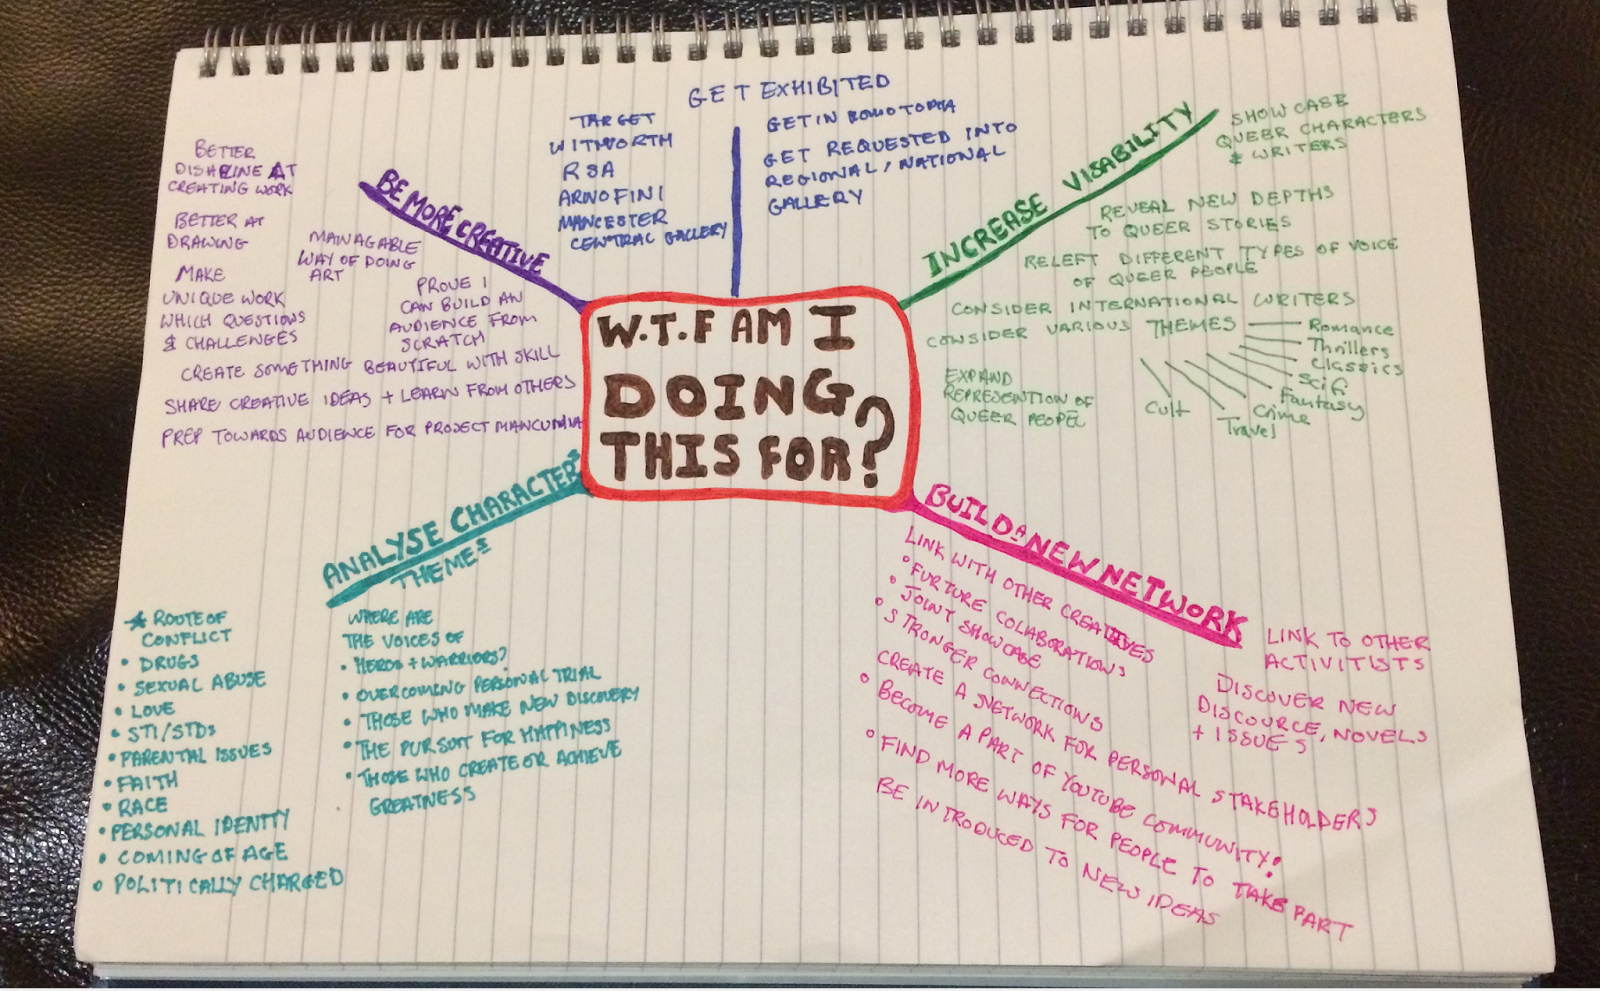 GET EXHIBITED
TARGET
WITWORTH
RSA
ARNOFINI
MANCESTER
CENTRAL GALLERY
GET IN HOMOTOPIA
GET REQUESTED INTO
REGIONAL/NATIONAL
GALLERY
BE MORE CREATIVE
BETTER
AT
CREATING WORK
BETTER AT
DRAWING
MAKE
UNIQUE WORK
WHICH QUESTIONS
& CHALLENGES
MANAGABLE
WAY OF DOING
ART
PROVE I
CAN BUILD AN
AUDIENCE FROM
SCRATCH
CREATE SOMETHING BEAUTIFUL WITH SKILL
SHARE CREATIVE IDEAS + LEARN FROM OTHERS
PREP TOWARDS AUDIENCE FOR PROJECT MANCUNIA
W.T.F AM I
DOING
THIS FOR?
INCREASE VISABILITY
SHOWCASE
QUEER CHARACTERS
& WRITERS
REVEAL NEW DEPTHS
TO QUEER STORIES
RELEFT DIFFERENT TYPES OF VOICE
OF QUEER PEOPLE
CONSIDER INTERNATIONAL WRITERS
CONSIDER VARIOUS THEMES
Romance
Thrillers
Classics
Scifi
Fantasy
Crime
Travel
Cult
EXPAND
OF
QUEER PEOPLE
ANALYSE CHARACTERS
THEMES
★ ROUTE OF
CONFLICT
• DRUGS
• SEXUAL ABUSE
• LOVE
• STI/STDs
• PARENTAL ISSUES
• FAITH
• RACE
• PERSONAL IDENTITY
• COMING OF AGE
• POLITICALLY CHARGED
WHERE ARE
THE VOICES OF
• HEROS + WARRIORS?
• OVERCOMING PERSONAL TRIAL
• THOSE WHO MAKE NEW DISCOVERY
• THE PURSUIT FOR HAPPINESS
• THOSE WHO CREATE OR ACHIEVE
GREATNESS
BUILD A NEW NETWORK
LINK WITH OTHER CREATIVES
• FURTURE COLABORATIONS
• JOINT SHOWCASE
• STRONGER CONNECTIONS
CREATE A NETWORK FOR PERSONAL STAKEHOLDERS
• BECOME A PART OF YOUTUBE COMMUNITY!
• FIND MORE WAYS FOR PEOPLE TO TAKE PART
BE INTRODUCED TO NEW IDEAS
LINK TO OTHER
ACTIVITISTS
DISCOVER NEW
DISCOURCE, NOVELS
+ ISSUES